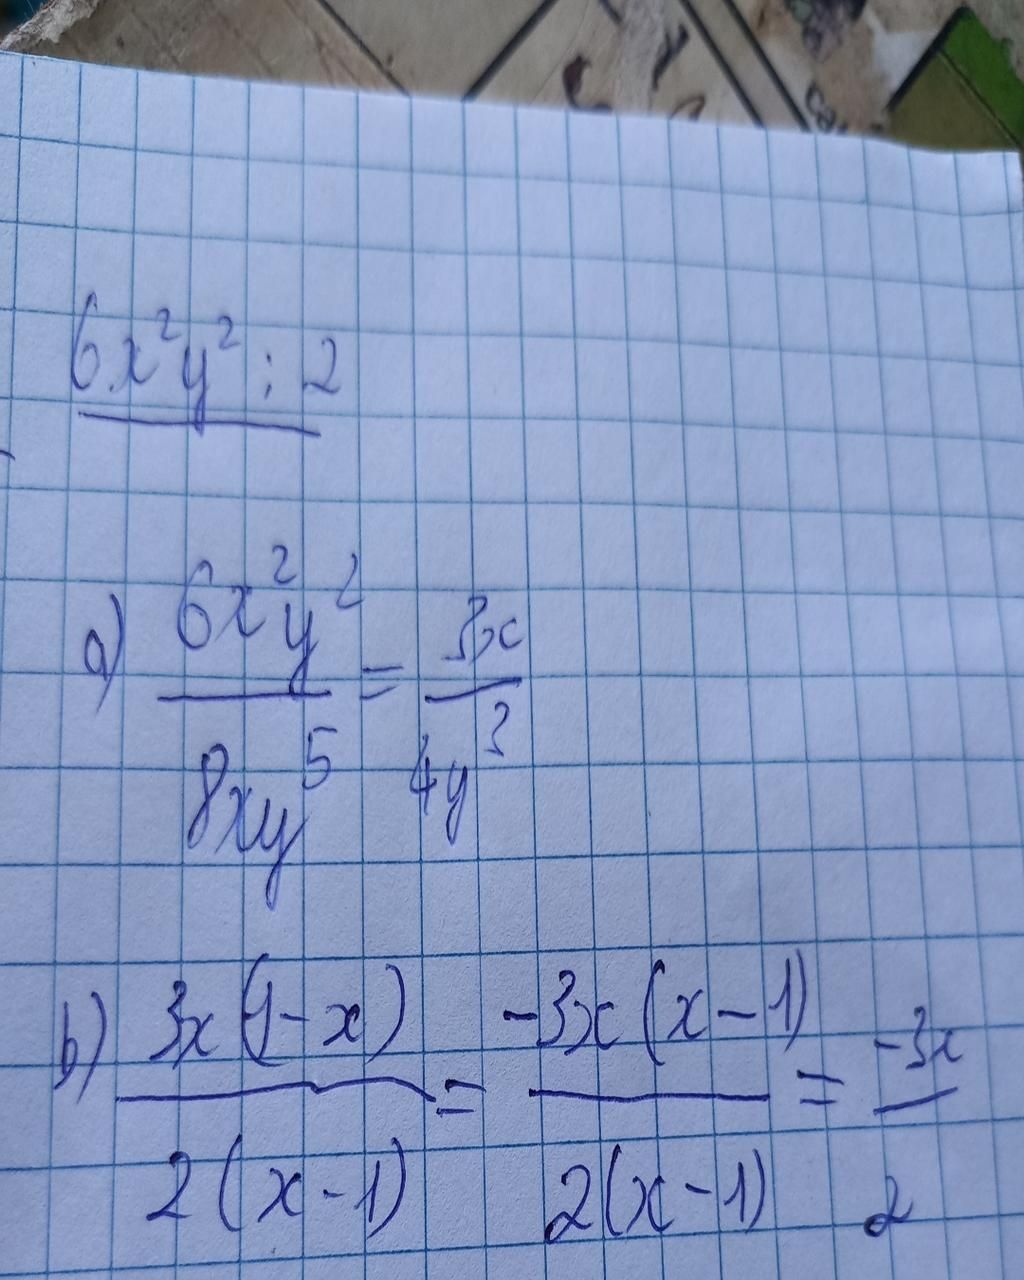 6x²y² : 2
a) 6x²y² / 8xy⁵ = 3x / 4y³
b) 3x(1-x) / 2(x-1) = -3x(x-1) / 2(x-1) = -3x / 2